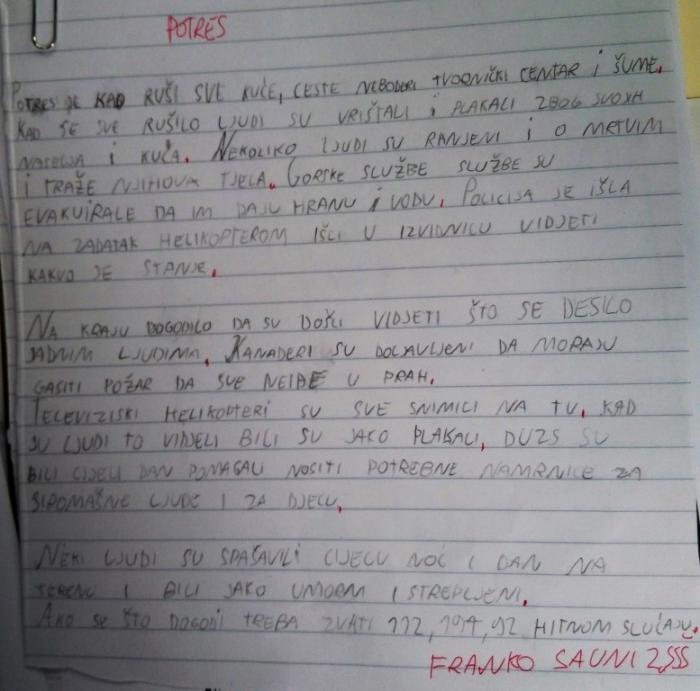 POTRES
POTRES JE KAD RUŠI SVE KUĆE, CESTE NEBODERI TVORNIČKI CENTAR I ŠUME.
KAD SE SVE RUŠILO LJUDI SU VRIŠTALI I PLAKALI ZBOG SVOJIH
NASELJA I KUĆA. NEKOLIKO LJUDI SU RANJENI I O METVIM
I TRAŽE NJIHOVA TJELA. GORSKE SLUŽBE SLUŽBE SU
EVAKUIRALE DA IM DAJU HRANU I VODU. POLICIJA JE IŠLA
NA ZADATAK HELIKOPTEROM IŠLI U IZVIDNICU VIDJETI
KAKVO JE STANJE.
NA KRAJU DOGODILO DA SU DOŠLI VIDJETI ŠTO SE DESILO
JADNIM LJUDIMA. KANADERI SU DOJAVLJENI DA MORAJU
GASITI POŽAR DA SVE NEIDE U PRAH.
TELEVIZISKI HELIKOPTERI SU SVE SNIMILI NA TV. KAD
SU LJUDI TO VIDJELI BILI SU JAKO PLAKALI. DUZS SU
BILI CIJELI DAN POMAGALI NOSITI POTREBNE NAMRNICE ZA
SIROMAŠNE LJUDE I ZA DJECU.
NEKI LJUDI SU SPAŠAVILI CIJELU NOĆ I DAN NA
TERENU I BILI JAKO UMORNI I STREPLJENI.
AKO SE ŠTO DOGODI TREBA ZVATI 112, 194, 92 HITNOM SLUČAJU.
FRANKO SAUNI